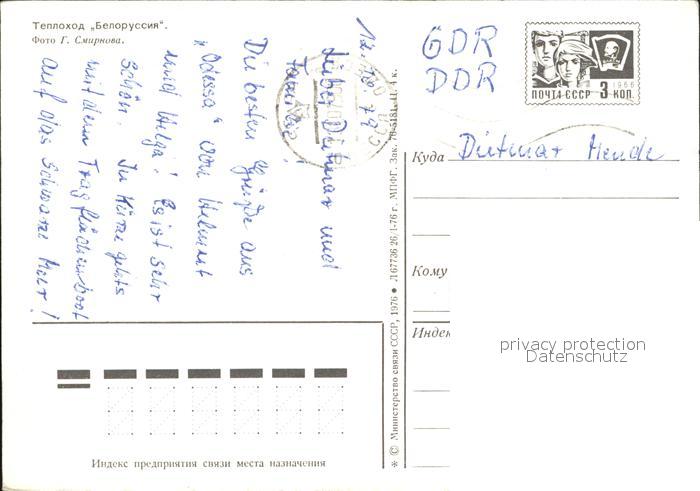 Теплоход „Белоруссия“.
Фото Г. Смирнова.
12. 10. 79
Lieber Dietmar und
Familie!
Die besten Grüße aus
"Odessa" von Helmut
und Helga! Es ist sehr
schön. In Kürze gehts
mit dem Tragflächenboot
auf das Schwarze Meer!
GDR
DDR
ПОЧТА СССР 3 КОП.
1966
Куда Dietmar Mende
Кому
Индекс
privacy protection
Datenschutz
* © Министерство связи СССР, 1976 ● Л67736 26/1-76 г. МПФГ. Зак. 76-5181. Ц. 4 к.
Индекс предприятия связи места назначения